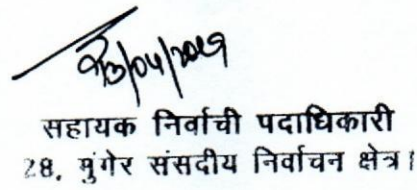 /04/2019
सहायक निर्वाची पदाधिकारी
28, मुंगेर संसदीय निर्वाचन क्षेत्र।